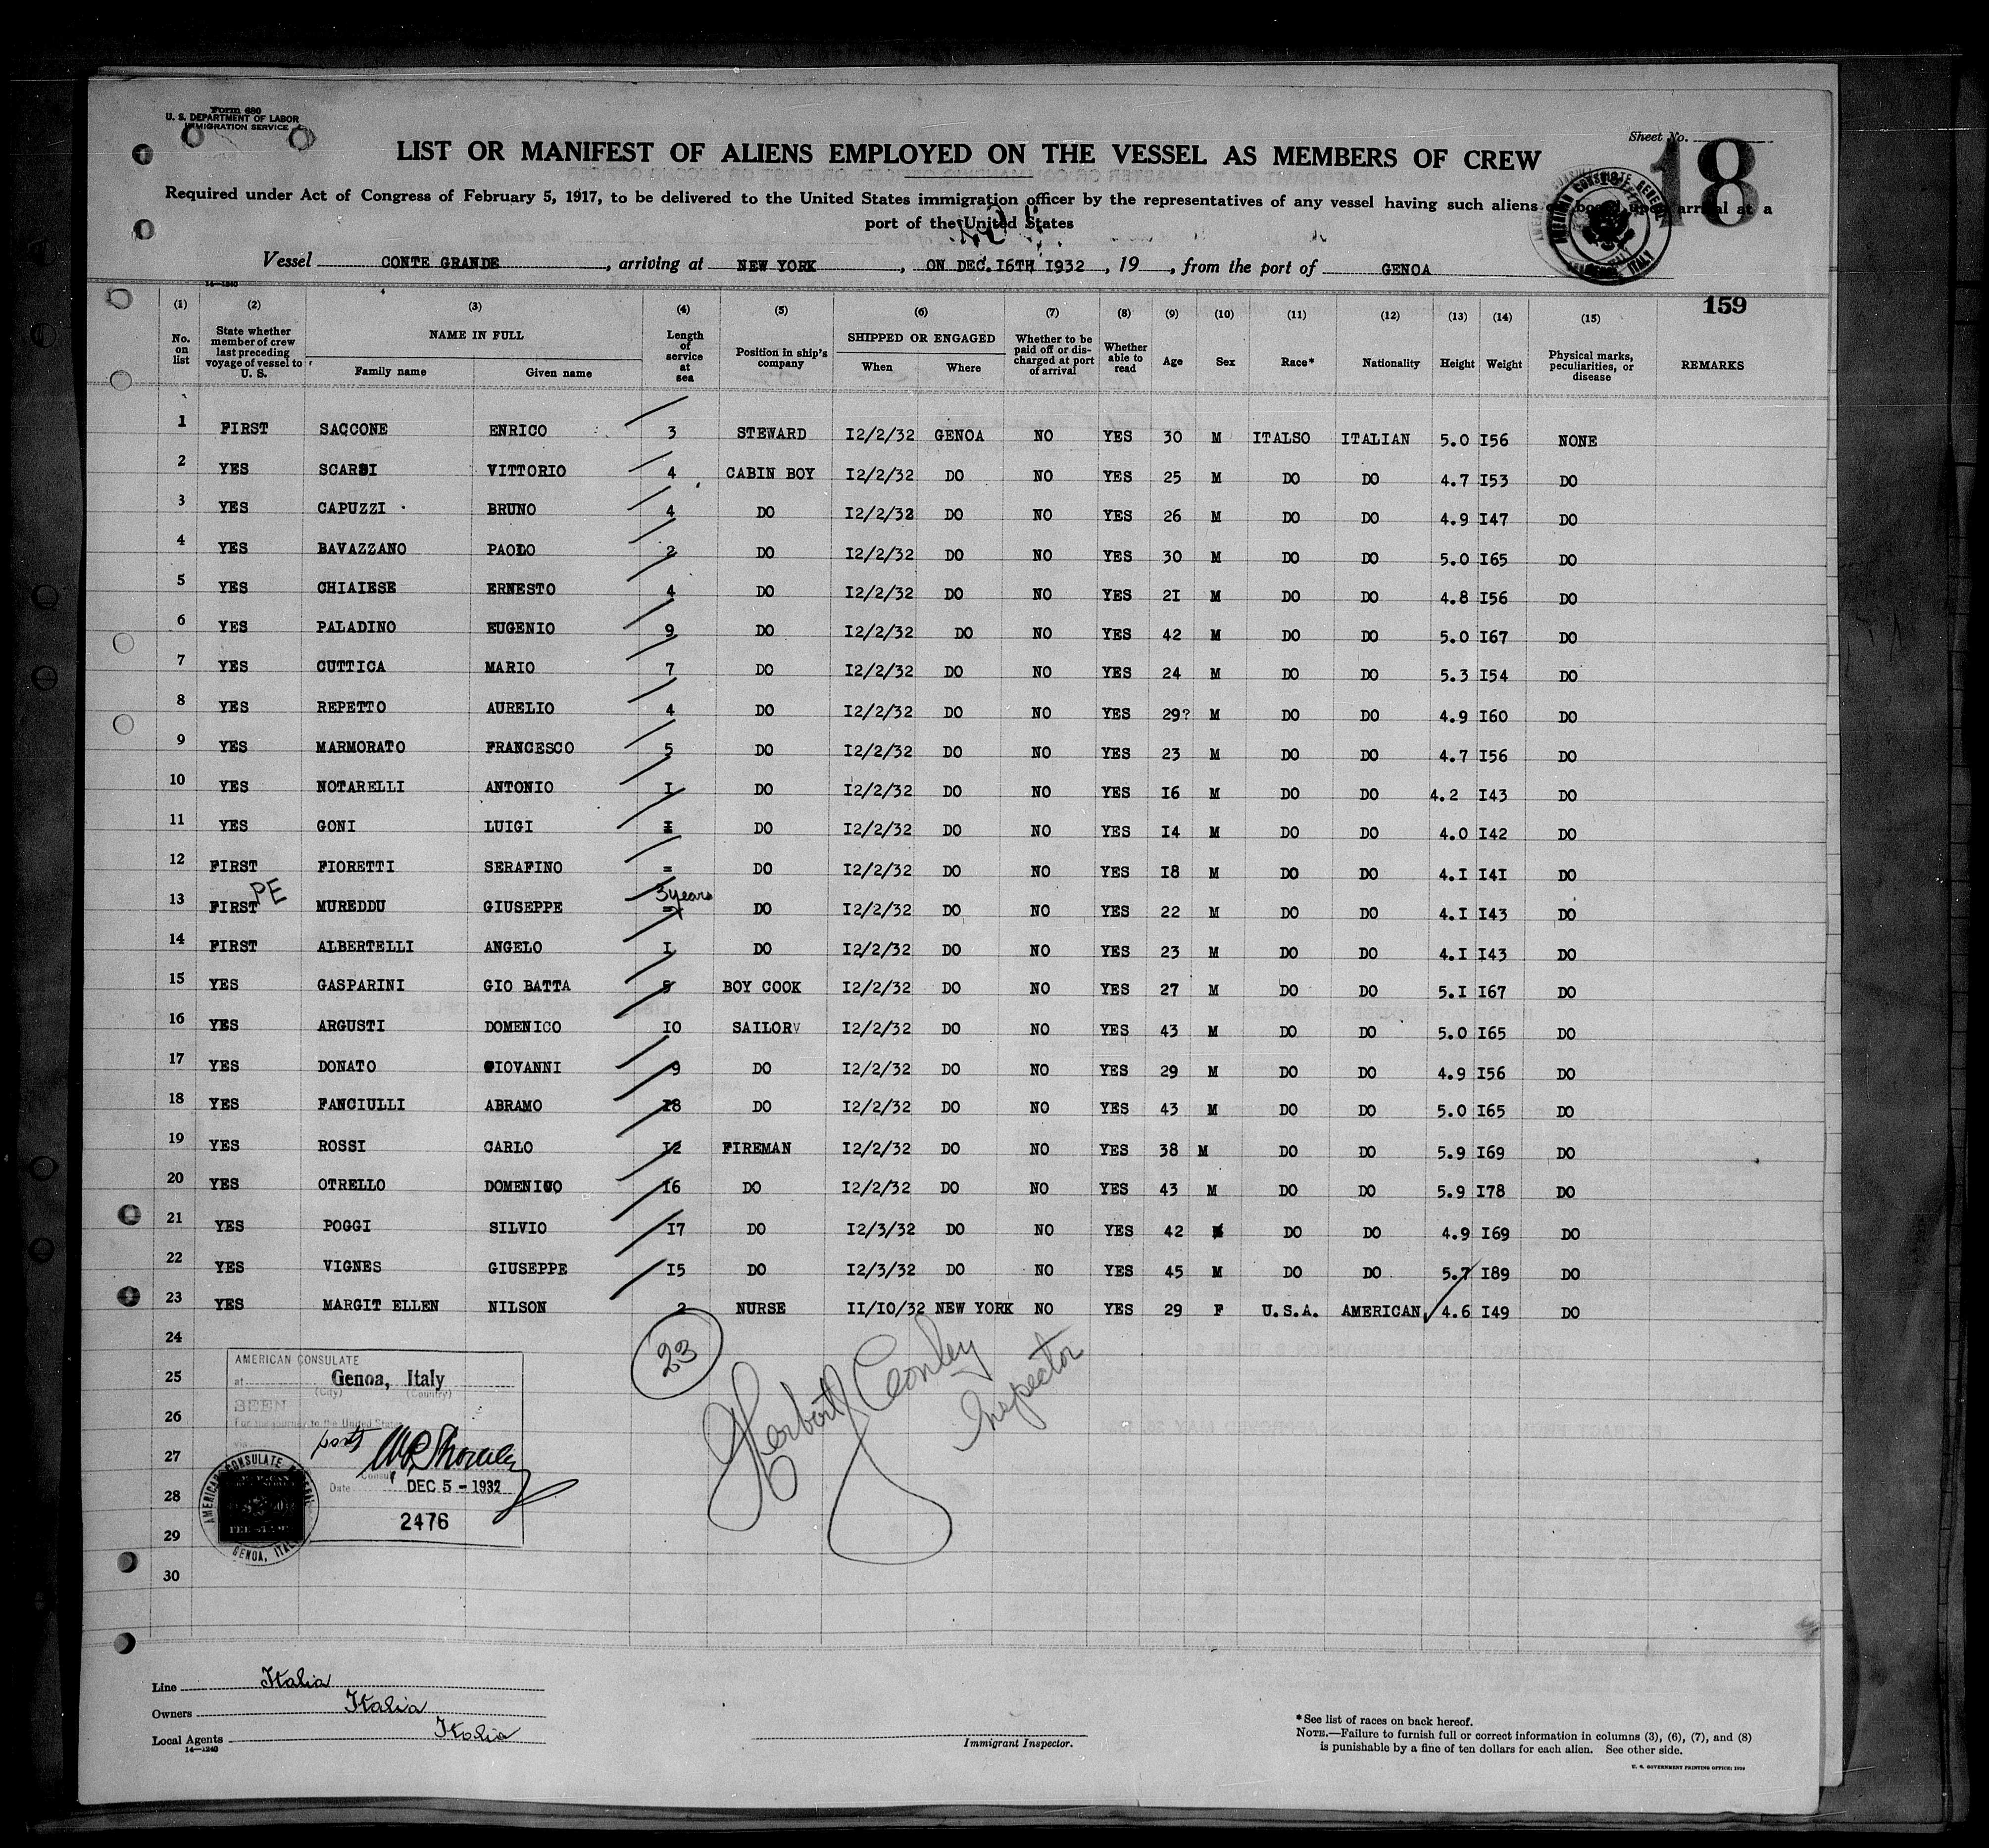 Form 680
U. S. DEPARTMENT OF LABOR
IMMIGRATION SERVICE
Sheet No. 18
LIST OR MANIFEST OF ALIENS EMPLOYED ON THE VESSEL AS MEMBERS OF CREW
Required under Act of Congress of February 5, 1917, to be delivered to the United States immigration officer by the representatives of any vessel having such aliens on board upon arrival at a
port of the United States
Vessel CONTE GRANDE, arriving at NEW YORK, ON DEC. I6TH I932, 19, from the port of GENOA
14-1240
159
(1) (2) (3) (4) (5) (6) (7) (8) (9) (10) (11) (12) (13) (14) (15)
No. on list | State whether member of crew last preceding voyage of vessel to U. S. | NAME IN FULL Family name Given name | Length of service at sea | Position in ship's company | SHIPPED OR ENGAGED When Where | Whether to be paid off or discharged at port of arrival | Whether able to read | Age | Sex | Race* | Nationality | Height | Weight | Physical marks, peculiarities, or disease | REMARKS
1 FIRST SACCONE ENRICO 3 STEWARD I2/2/32 GENOA NO YES 30 M ITALSO ITALIAN 5.0 I56 NONE
2 YES SCARSI VITTORIO 4 CABIN BOY I2/2/32 DO NO YES 25 M DO DO 4.7 I53 DO
3 YES CAPUZZI BRUNO 4 DO I2/2/32 DO NO YES 26 M DO DO 4.9 I47 DO
4 YES BAVAZZANO PAOLO 2 DO I2/2/32 DO NO YES 30 M DO DO 5.0 I65 DO
5 YES CHIAIESE ERNESTO 4 DO I2/2/32 DO NO YES 2I M DO DO 4.8 I56 DO
6 YES PALADINO EUGENIO 9 DO I2/2/32 DO NO YES 42 M DO DO 5.0 I67 DO
7 YES CUTTICA MARIO 7 DO I2/2/32 DO NO YES 24 M DO DO 5.3 I54 DO
8 YES REPETTO AURELIO 4 DO I2/2/32 DO NO YES 29? M DO DO 4.9 I60 DO
9 YES MARMORATO FRANCESCO 5 DO I2/2/32 DO NO YES 23 M DO DO 4.7 I56 DO
10 YES NOTARELLI ANTONIO I DO I2/2/32 DO NO YES I6 M DO DO 4.2 I43 DO
11 YES GONI LUIGI I DO I2/2/32 DO NO YES I4 M DO DO 4.0 I42 DO
12 FIRST FIORETTI SERAFINO = DO I2/2/32 DO NO YES I8 M DO DO 4.I I4I DO
PE 3 years
13 FIRST MUREDDU GIUSEPPE = DO I2/2/32 DO NO YES 22 M DO DO 4.I I43 DO
14 FIRST ALBERTELLI ANGELO I DO I2/2/32 DO NO YES 23 M DO DO 4.I I43 DO
15 YES GASPARINI GIO BATTA BOY COOK I2/2/32 DO NO YES 27 M DO DO 5.I I67 DO
16 YES ARGUSTI DOMENICO IO SAILOR I2/2/32 DO NO YES 43 M DO DO 5.0 I65 DO
17 YES DONATO GIOVANNI 9 DO I2/2/32 DO NO YES 29 M DO DO 4.9 I56 DO
18 YES FANCIULLI ABRAMO I8 DO I2/2/32 DO NO YES 43 M DO DO 5.0 I65 DO
19 YES ROSSI CARLO I2 FIREMAN I2/2/32 DO NO YES 38 M DO DO 5.9 I69 DO
20 YES OTRELLO DOMENICO I6 DO I2/2/32 DO NO YES 43 M DO DO 5.9 I78 DO
21 YES POGGI SILVIO I7 DO I2/3/32 DO NO YES 42 M DO DO 4.9 I69 DO
22 YES VIGNES GIUSEPPE I5 DO I2/3/32 DO NO YES 45 M DO DO 5.7 I89 DO
23 YES MARGIT ELLEN NILSON 2 NURSE II/IO/32 NEW YORK NO YES 29 F U.S.A. AMERICAN 4.6 I49 DO
24
25
26
27
28
29
30
23
Herbert Conley
Inspector
AMERICAN CONSULATE
at Genoa, Italy
(City) (Country)
SEEN
For the journey to the United States
via ports
Consul
Date DEC 5 - 1932
2476
AMERICAN CONSULATE GENERAL
GENOA, ITALY
Line Italia
Owners Italia
Local Agents Italia
14-1240
Immigrant Inspector.
* See list of races on back hereof.
NOTE.—Failure to furnish full or correct information in columns (3), (6), (7), and (8)
is punishable by a fine of ten dollars for each alien. See other side.
U. S. GOVERNMENT PRINTING OFFICE: